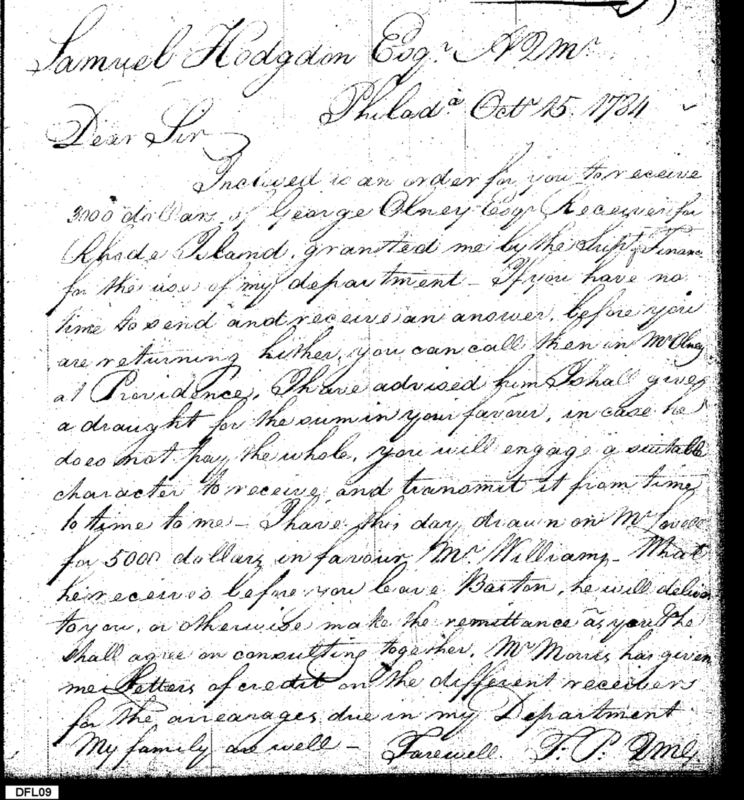 Samuel Hodgdon Esqr. A2Mr.
Philada. Octr. 15. 1784
Dear Sir
Inclosed is an order for you to receive
3000 dollars of George Olney Esqr. Receiver for
Rhode Island, granted me by the Supt. Finance
for the use of my department - If you have no
time to send and receive an answer, before you
are returning hither, you can call then on Mr. Olney
at Providence. I have advised him I shall give
a draught for the sum in your favour, in case he
does not pay the whole, you will engage a suitable
character to receive and transmit it from time
to time to me - I have this day drawn on Mr. Lovell
for 5000 dollars in favour Mr. Williams - What
he receives before you leave Boston, he will deliver
to you, or otherwise make the remittance as you & he
shall agree on consulting together. Mr. Morris has given
me Letters of credit on the different receivers
for the arrearages due in my Department
My family are well - Farewell. T. P. 2MG.
DFL09